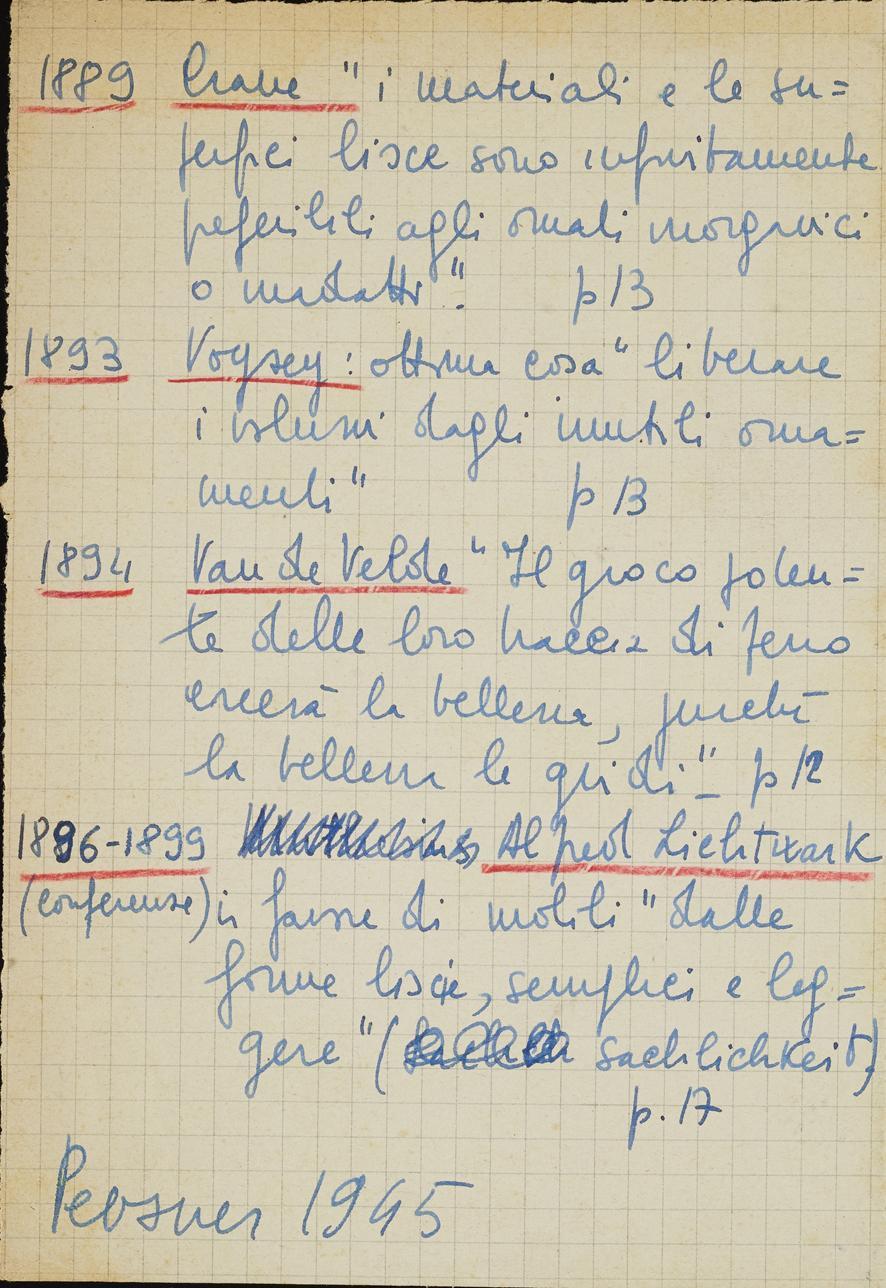 1889 Crane " i materiali e le su=
perfici lisce sono infinitamente
preferibili agli ornati inorganici
o inadatti". p 13
1893 Voysey: ottima cosa " liberare
i volumi dagli inutili orna=
menti" p 13
1894 Van de Velde " Il gioco poten=
te delle loro braccia di ferro
creerà la bellezza, purché
la bellezza le guidi". p 12
1896-1899 Alfred Lichtwark
(conferenze) in favore di mobili " dalle
forme liscie, semplici e leg=
gere" ( sachlichkeit)
p. 17
Pevsner 1945